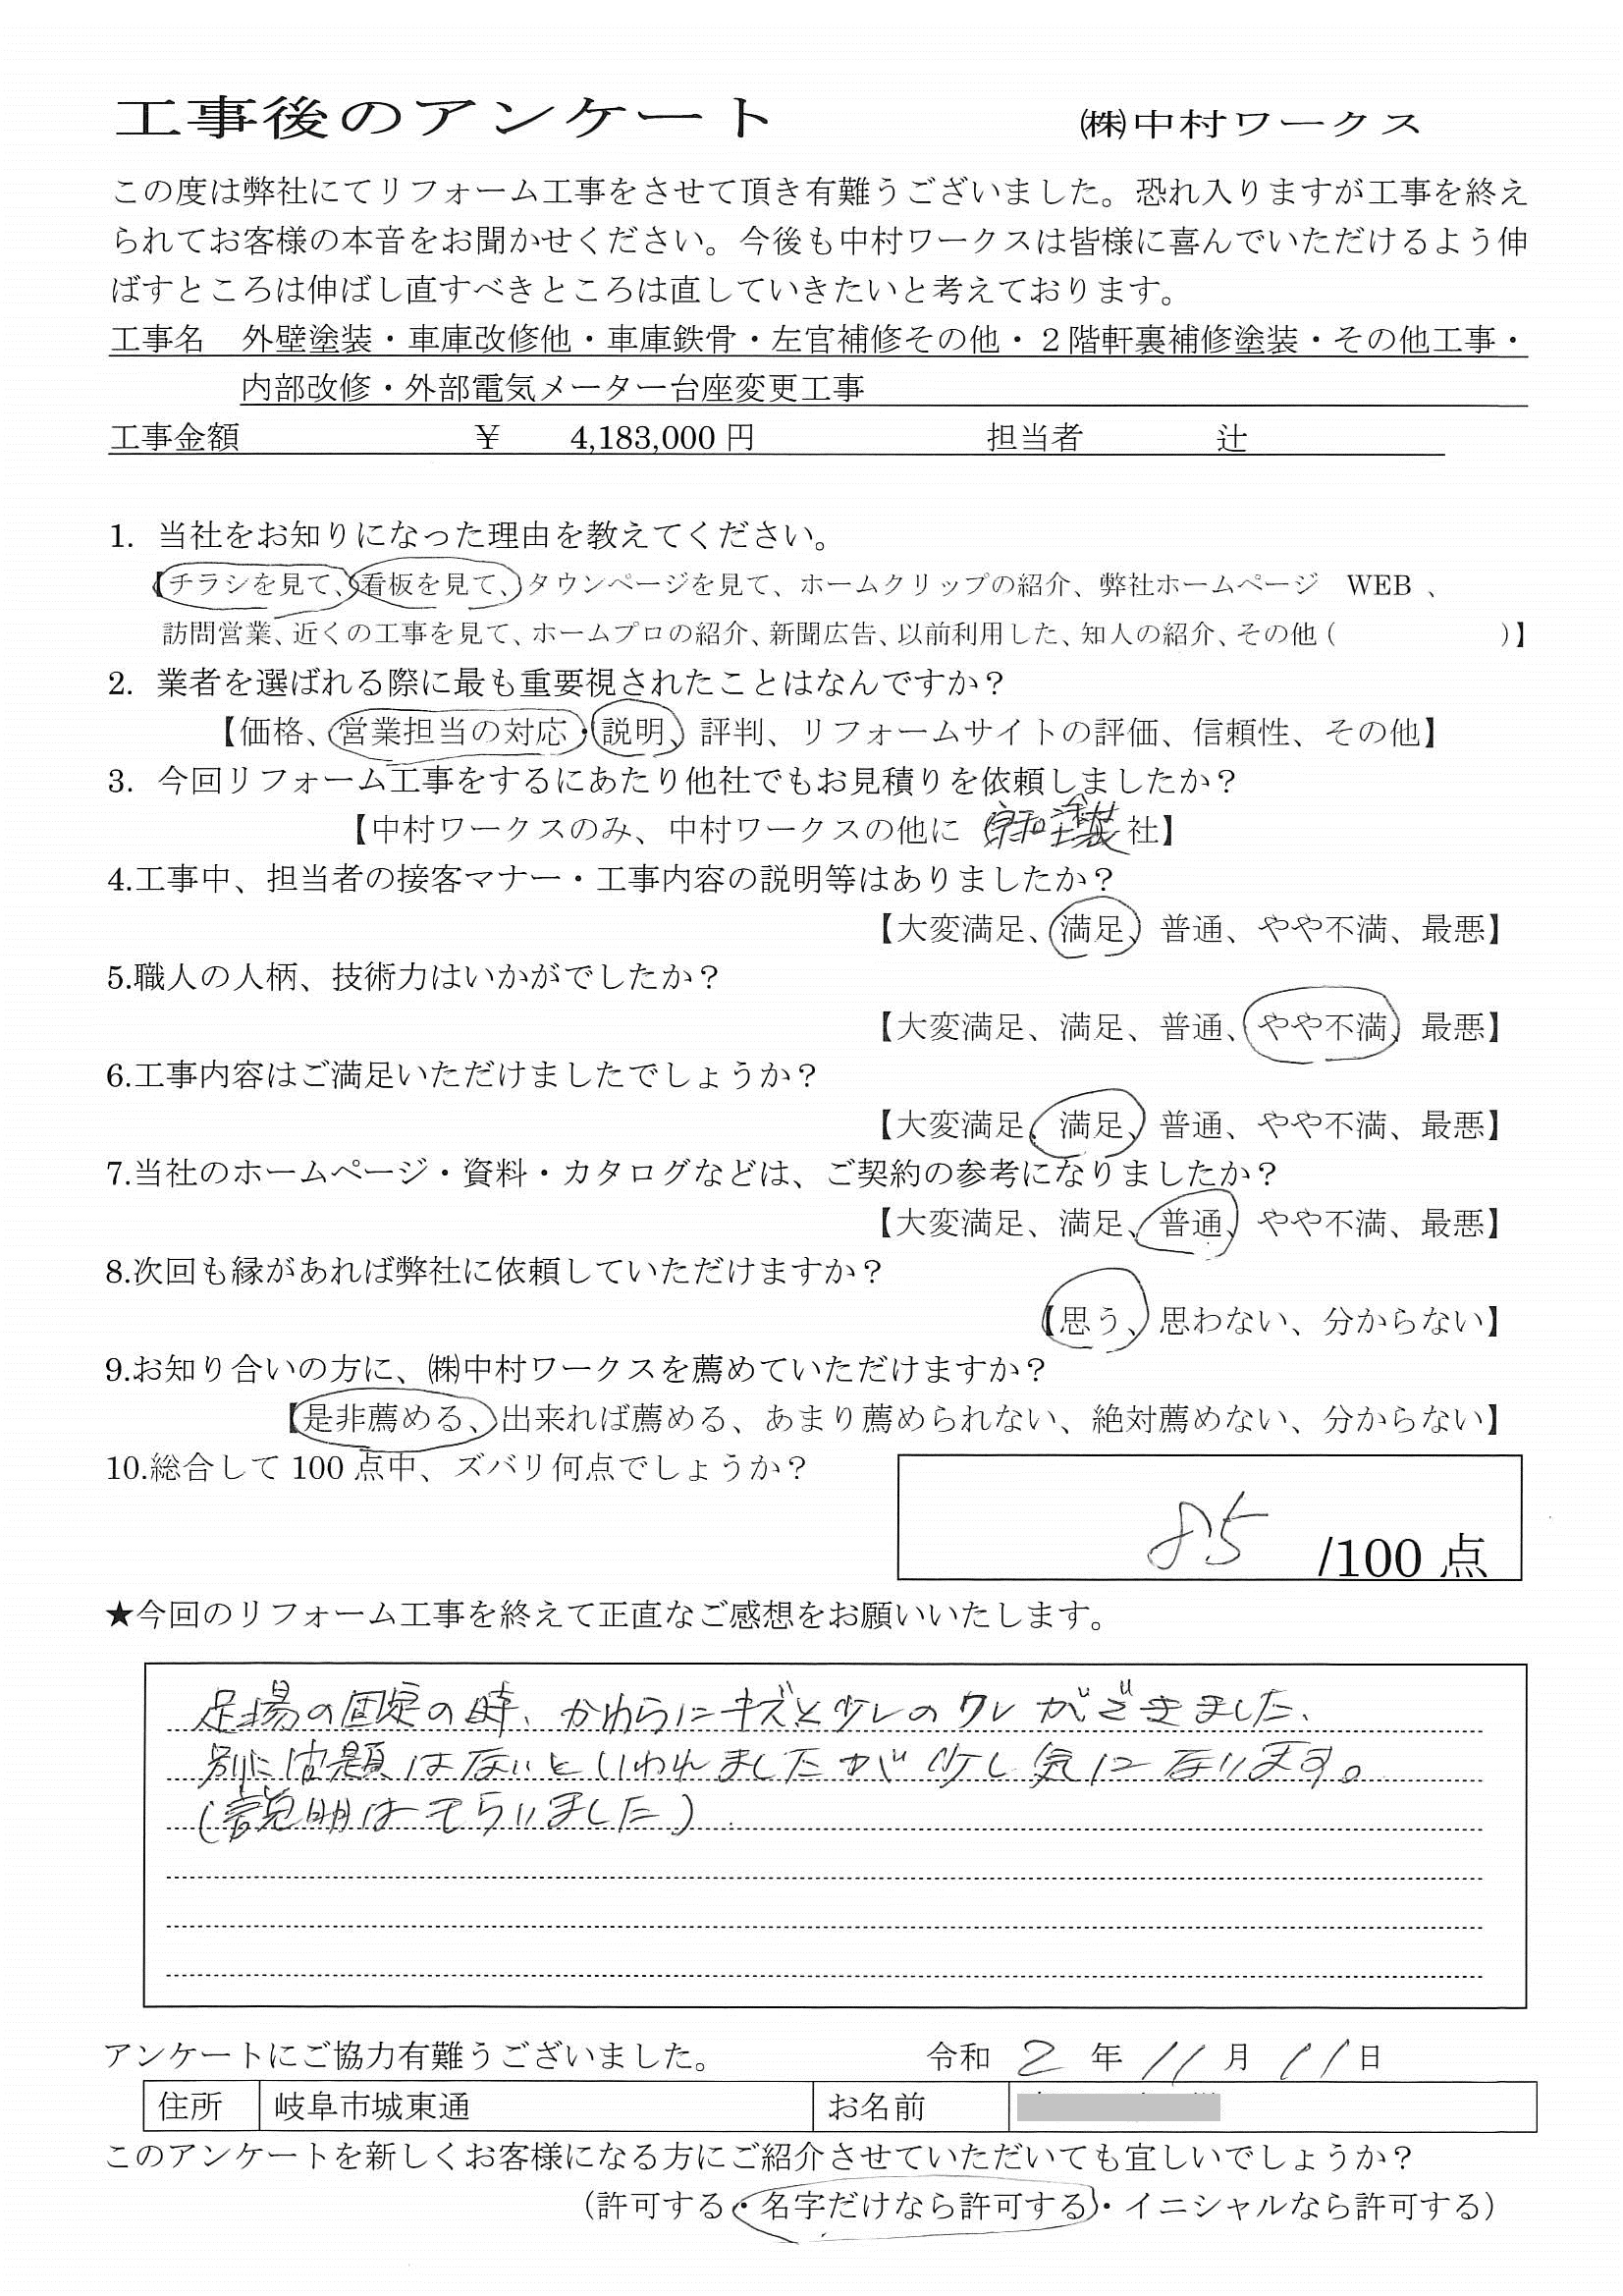 工事後のアンケート ㈱中村ワークス
この度は弊社にてリフォーム工事をさせて頂き有難うございました。恐れ入りますが工事を終え
られてお客様の本音をお聞かせください。今後も中村ワークスは皆様に喜んでいただけるよう伸
ばすところは伸ばし直すべきところは直していきたいと考えております。
工事名 外壁塗装・車庫改修他・車庫鉄骨・左官補修その他・２階軒裏補修塗装・その他工事・
内部改修・外部電気メーター台座変更工事
工事金額 ￥ 4,183,000 円 担当者 辻
1. 当社をお知りになった理由を教えてください。
【チラシを見て、看板を見て、タウンページを見て、ホームクリップの紹介、弊社ホームページ WEB 、
訪問営業、近くの工事を見て、ホームプロの紹介、新聞広告、以前利用した、知人の紹介、その他（ ）】
2. 業者を選ばれる際に最も重要視されたことはなんですか？
【価格、営業担当の対応・説明、評判、リフォームサイトの評価、信頼性、その他】
3. 今回リフォーム工事をするにあたり他社でもお見積りを依頼しましたか？
【中村ワークスのみ、中村ワークスの他に 塗装 社】
4.工事中、担当者の接客マナー・工事内容の説明等はありましたか？
【大変満足、満足、普通、やや不満、最悪】
5.職人の人柄、技術力はいかがでしたか？
【大変満足、満足、普通、やや不満、最悪】
6.工事内容はご満足いただけましたでしょうか？
【大変満足、満足、普通、やや不満、最悪】
7.当社のホームページ・資料・カタログなどは、ご契約の参考になりましたか？
【大変満足、満足、普通、やや不満、最悪】
8.次回も縁があれば弊社に依頼していただけますか？
【思う、思わない、分からない】
9.お知り合いの方に、㈱中村ワークスを薦めていただけますか？
【是非薦める、出来れば薦める、あまり薦められない、絶対薦めない、分からない】
10.総合して 100 点中、ズバリ何点でしょうか？
85 /100 点
★今回のリフォーム工事を終えて正直なご感想をお願いいたします。
足場の固定の時、かわらにキズと少しのワレができました、
別に問題はないといわれましたが少し気になります。
(説明はもらいました)
アンケートにご協力有難うございました。 令和 2 年 11 月 11 日
住所 岐阜市城東通 お名前
このアンケートを新しくお客様になる方にご紹介させていただいても宜しいでしょうか？
（許可する・名字だけなら許可する・イニシャルなら許可する）